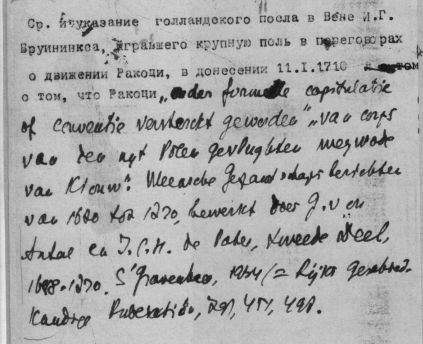 Ср. указание голландского посла в Вене И.Г.
Бруининкса, игравшего крупную роль в переговорах
о движении Ракоци, в донесении 11.I.1710
о том, что Ракоци „onder formeele capitulatie
of conventie versterckt geworden" „van corps
van den uyt Polen gevlughten
van Kiouw". Weensche Gezantschapsberichten
van 1670 tot 1720, bewerkt door G. von
Antal en J.C.H. de Pater, tweede deel,
1698-1720. S'Gravenhage, 1934 (= Rijks Geschied-
kundige 451, 498.